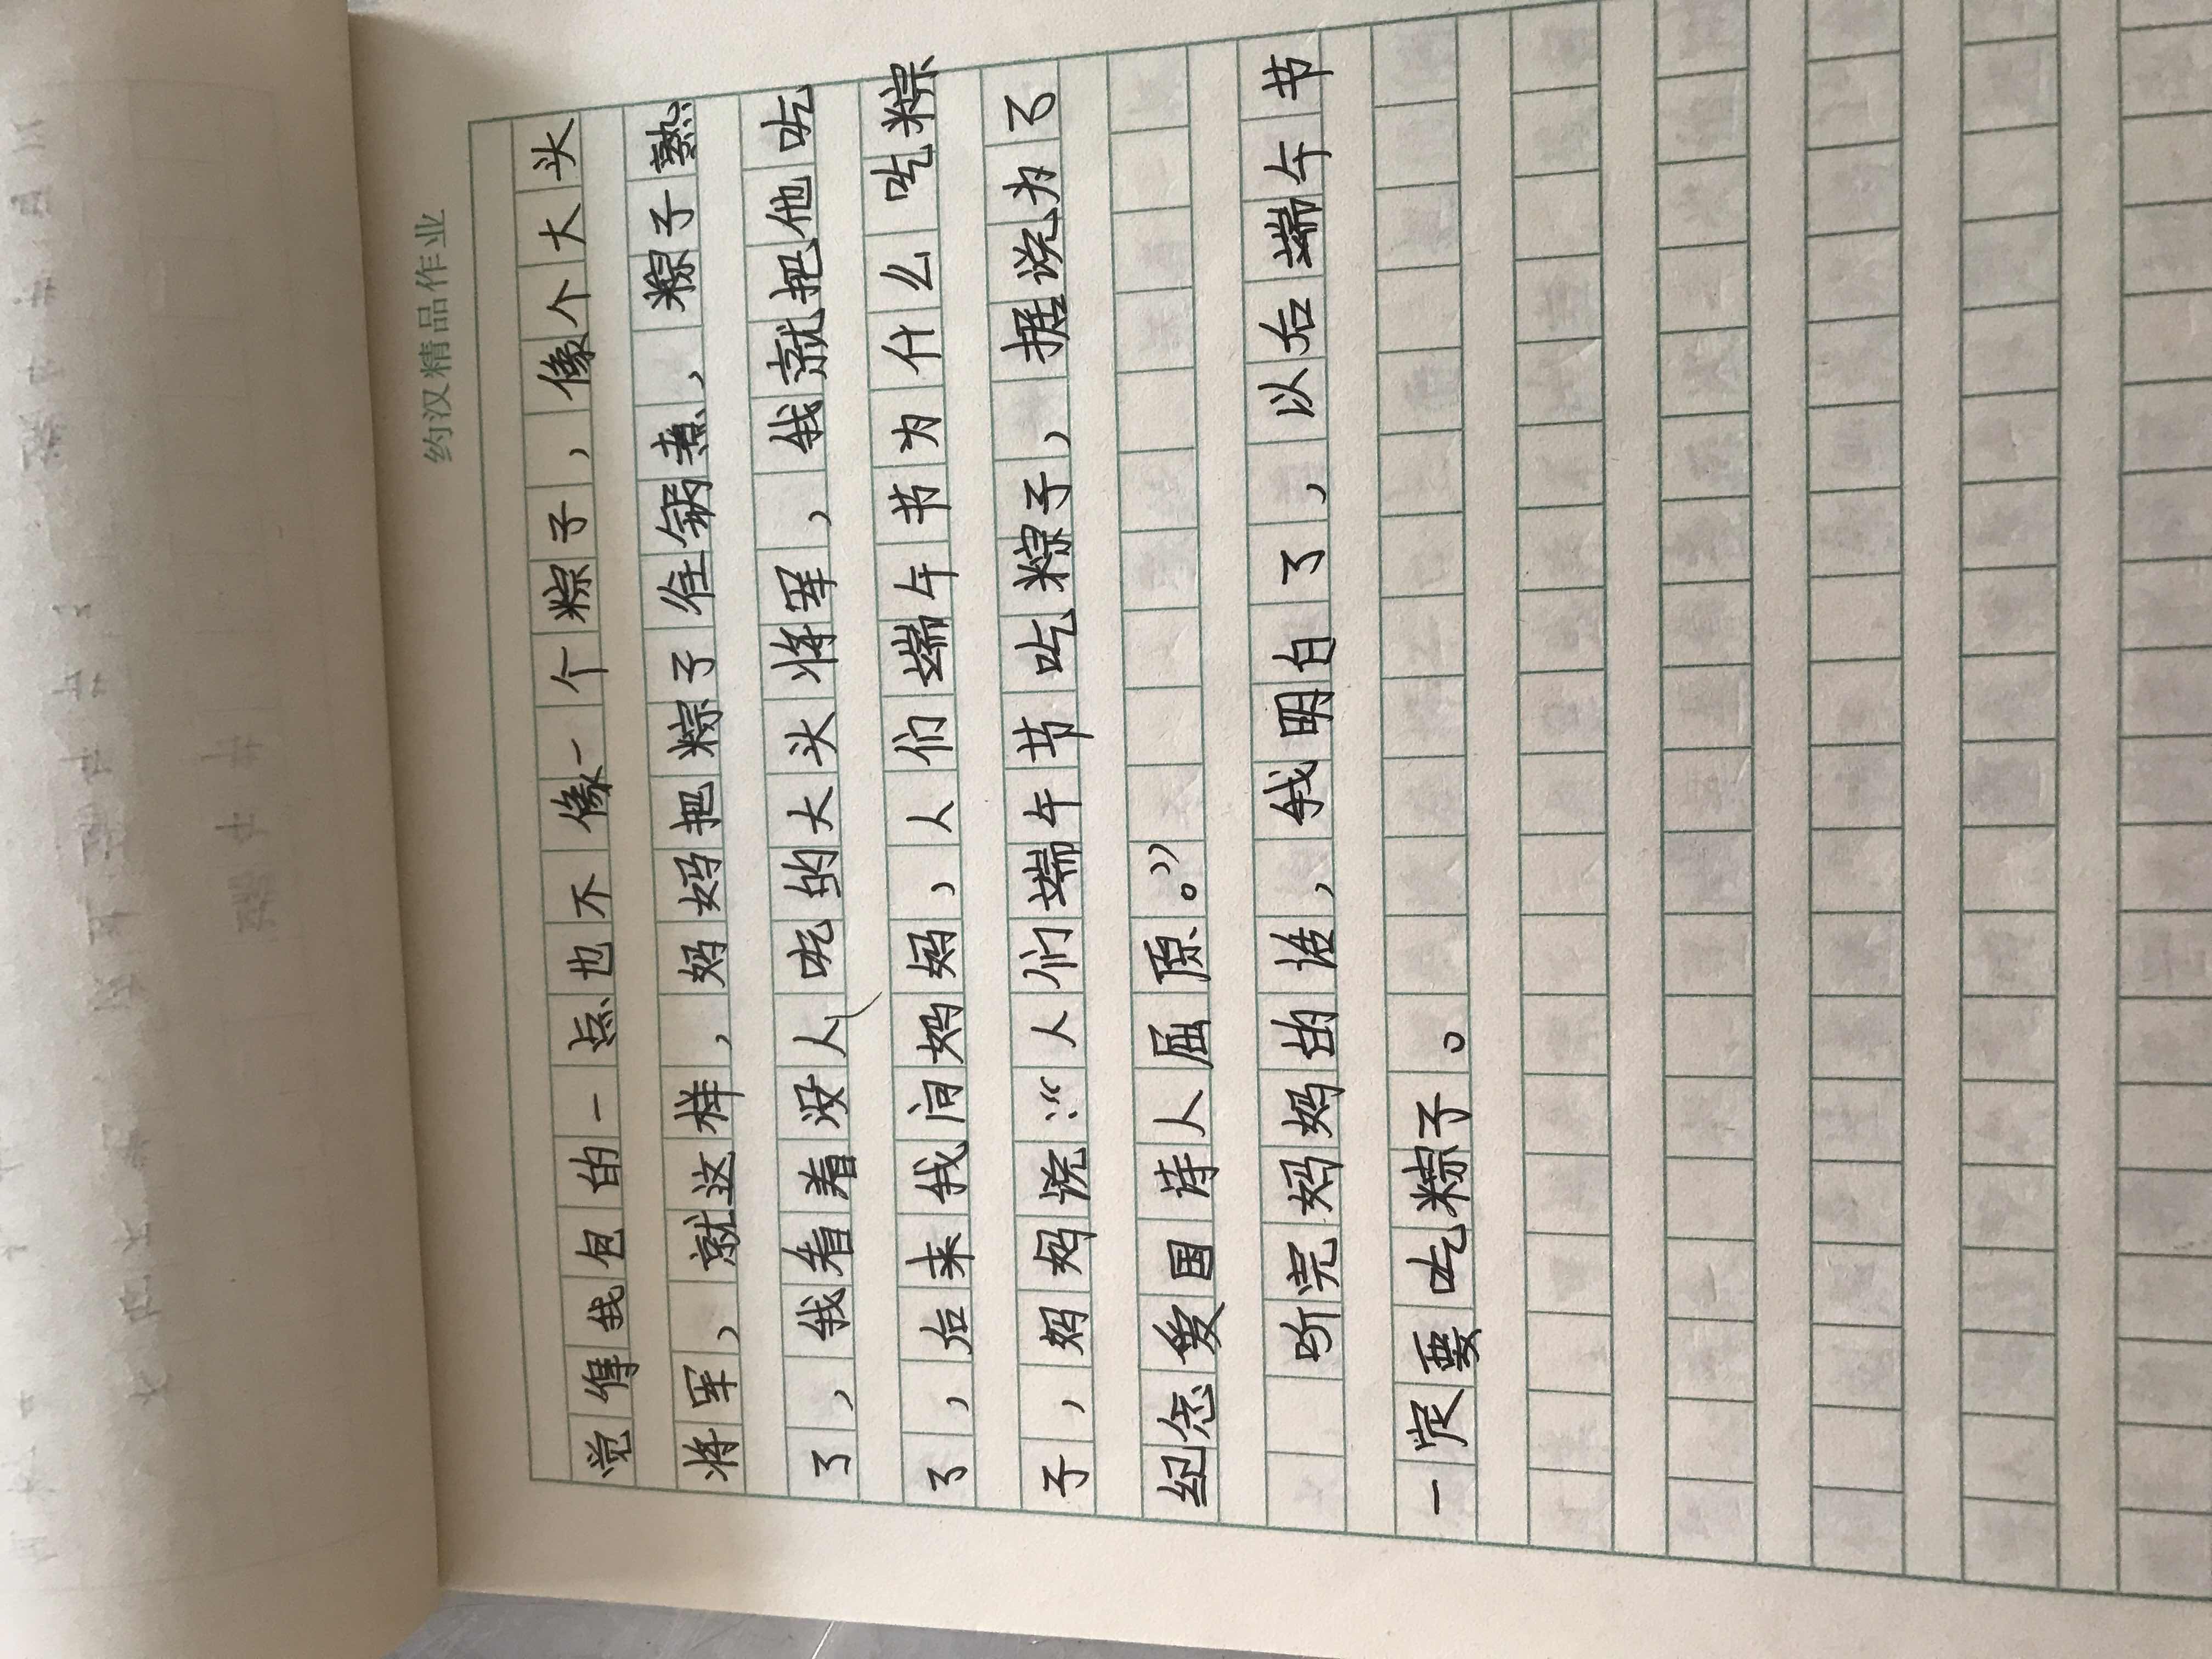 约汉精品作业
觉得我包的一点也不像一个粽子，像个大头
将军，就这样，妈妈把粽子往锅煮，粽子熟
了，我看着没人吃的大头将军，我就把他吃
了，后来我问妈妈，人们端午节为什么吃粽
子，妈妈说：“人们端午节吃粽子，据说为了
纪念爱国诗人屈原。”
听完妈妈的话，我明白了，以后端午节
一定要吃粽子。